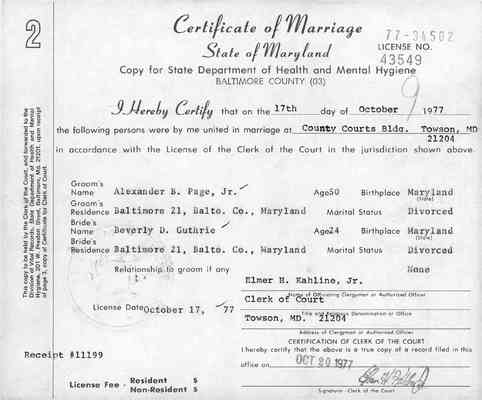 2
Certificate of Marriage
77-34502
State of Maryland
LICENSE NO.
43549
Copy for State Department of Health and Mental Hygiene
BALTIMORE COUNTY (03)
9
I Hereby Certify that on the 17th day of October 1977
the following persons were by me united in marriage at County Courts Bldg. Towson, MD
21204
in accordance with the License of the Clerk of the Court in the jurisdiction shown above.
Groom's
Name Alexander B. Page, Jr. Age 50 Birthplace Maryland
(State)
Groom's
Residence Baltimore 21, Balto. Co., Maryland Marital Status Divorced
Bride's
Name Beverly D. Guthrie Age 24 Birthplace Maryland
(State)
Bride's
Residence Baltimore 21, Balto. Co., Maryland Marital Status Divorced
Relationship to groom if any None
Elmer H. Kahline, Jr.
Name of Officiating Clergyman or Authorized Officer
Clerk of Court
License Date October 17, 77
Title and Religious Denomination or Office
Towson, MD. 21204
Address of Clergyman or Authorized Officer
CERTIFICATION OF CLERK OF THE COURT
Receipt #11199
I hereby certify that the above is a true copy of a record filed in this
office on OCT 20 1977
License Fee - Resident $
Non-Resident $
Signature - Clerk of the Court
This copy to be held by the Clerk of the Court, and forwarded to the
Division of Vital Records, State Department of Health and Mental
Hygiene, 201 W. Preston Street, Baltimore, Md. 21201, upon receipt
of page 3, copy of Certificate for Clerk of Court